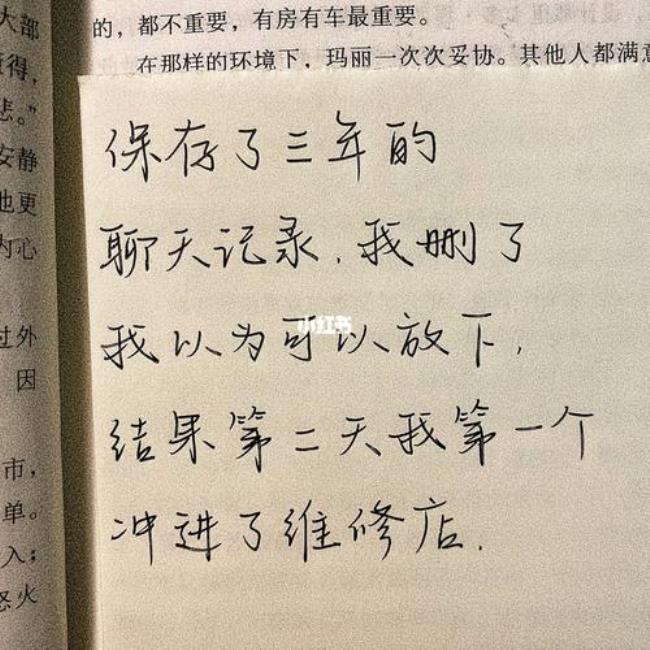 大部
得，
悲。”
安静
他更
内心
过外
因
市，
单。
入；
怒火
的，都不重要，有房有车最重要。
在那样的环境下，玛丽一次次妥协。其他人都满意
保存了三年的
聊天记录.我删了
我以为可以放下，
结果第二天我第一个
冲进了维修店.
小红书